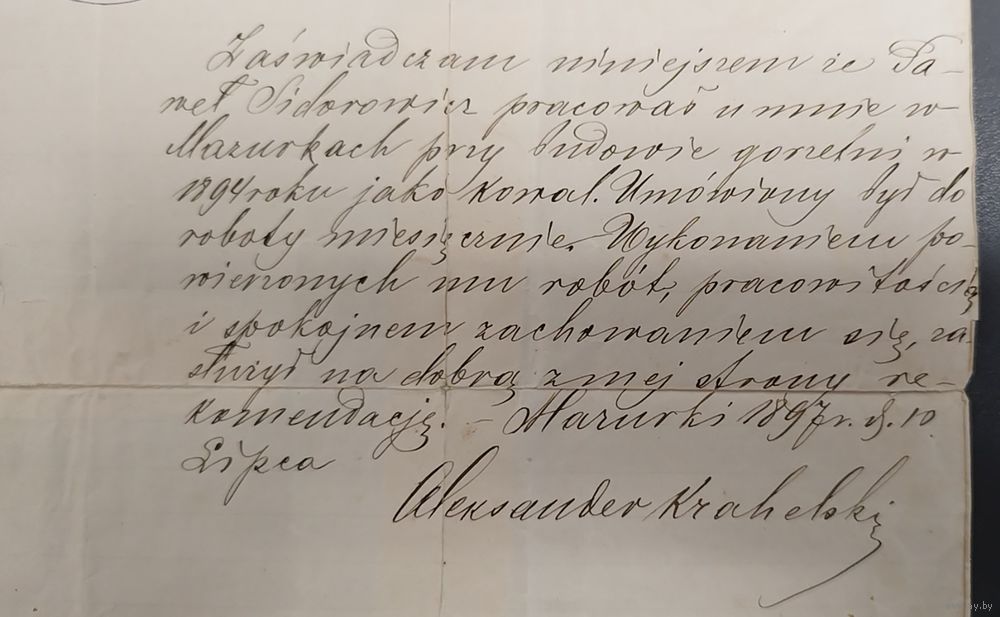 Zaświadczam niniejszem że Pa-
weł Sidorowicz pracował u mnie w
Mazurkach przy budowie gorzelni w
1894 roku jako kowal. Umówiony był do
roboty miesięcznie. Wykonaniem po-
wierzonych mu robót, pracowitością
i spokojnem zachowaniem się, za-
służył na dobrą z mej strony re-
komendację. - Mazurki 1897 r. d. 10
Lipca
Aleksander Krahelski